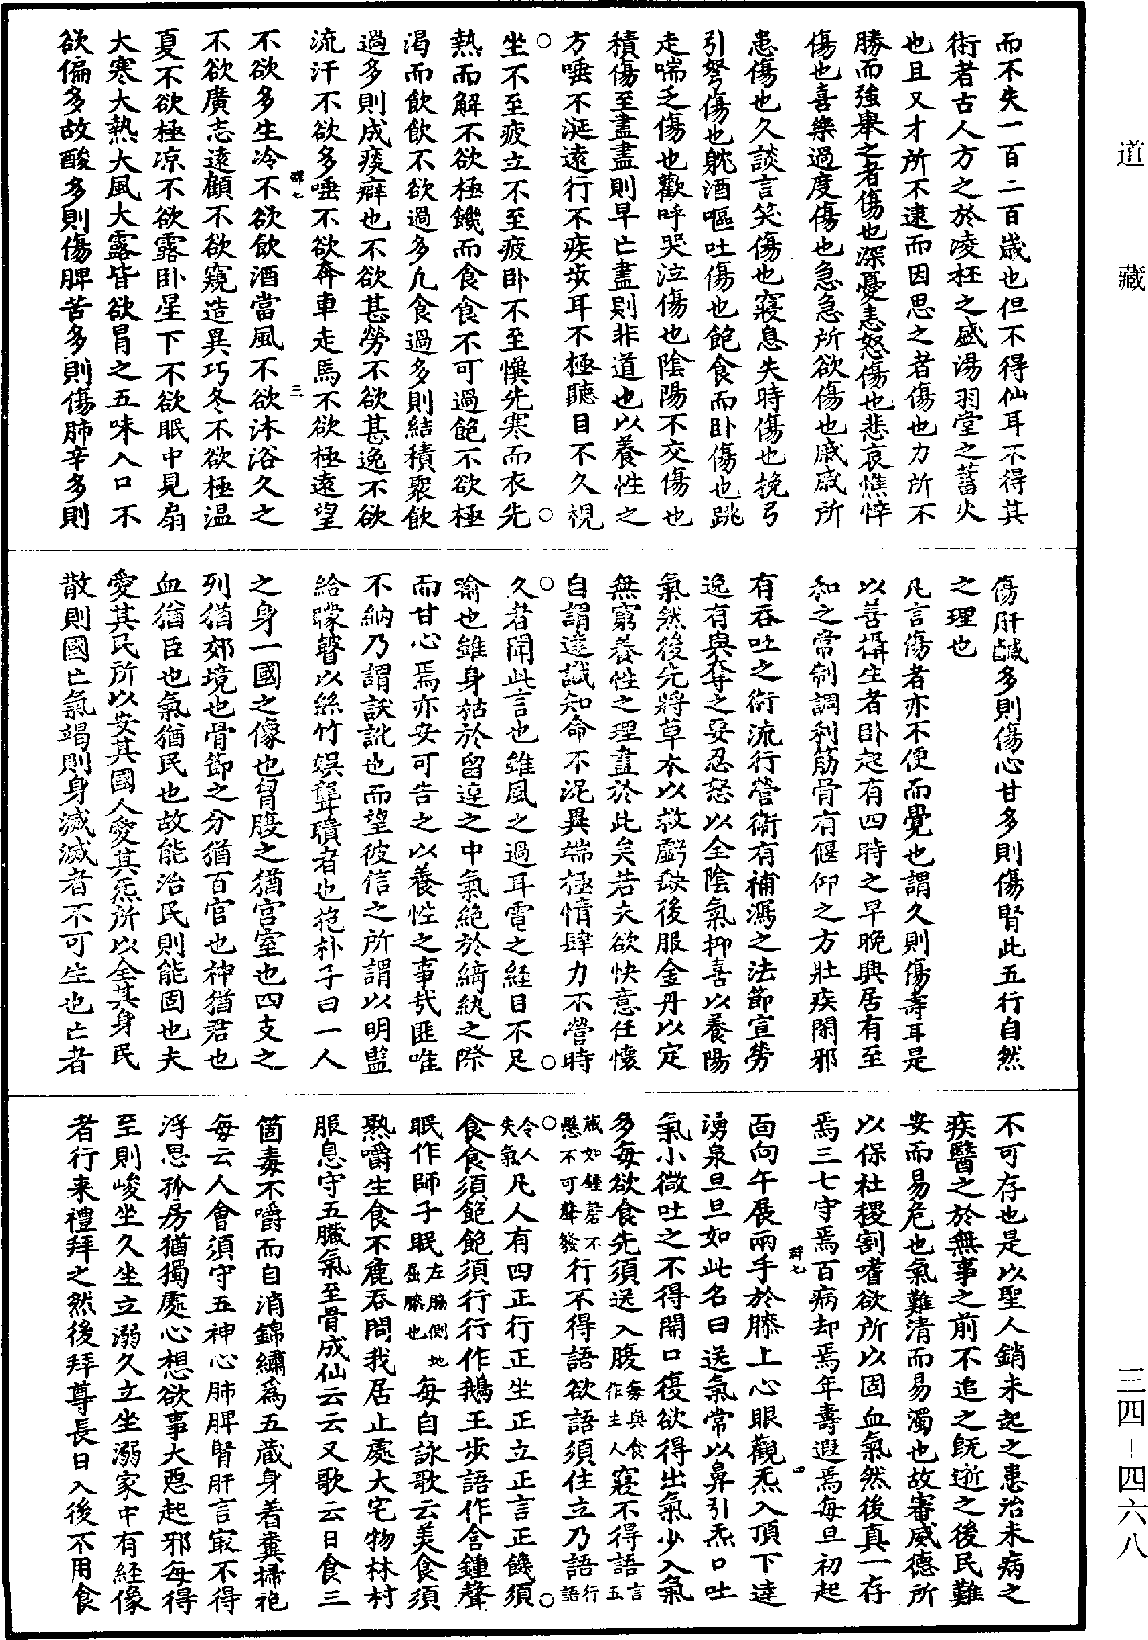 道藏
三四-四六八
而不失一百二百歲也但不得仙耳不得其
術者古人方之於凌杯之盛湯羽堂之蓄火
也且又才所不逮而因思之者傷也力所不
勝而強舉之者傷也深憂恚怒傷也悲哀憔悴
傷也喜樂過度傷也急急所欲傷也戚戚所
患傷也久談言笑傷也寢息失時傷也挽弓
引弩傷也躭酒嘔吐傷也飽食而卧傷也跳
走喘乏傷也歡呼哭泣傷也陰陽不交傷也
積傷至盡盡則早亡盡則非道也以養性之
方唾不涎遠行不疾步耳不極聽目不久視
坐不至疲立不至疲卧不至懻先寒而衣先
熱而解不欲極饑而食食不可過飽不欲極
渴而飲飲不欲過多凡食過多則結積聚飲
過多則成痰癖也不欲甚勞不欲甚逸不欲
流汗不欲多唾不欲奔車走馬不欲極遠望
群七 三
不欲多生冷不欲飲酒當風不欲沐浴久之
不欲廣志遠願不欲窺造異巧冬不欲極温
夏不欲極凉不欲露卧星下不欲眠中見扇
大寒大熱大風大露皆欲冐之五味入口不
欲偏多故酸多則傷脾苦多則傷肺辛多則
傷肝鹹多則傷心甘多則傷腎此五行自然
之理也
凡言傷者亦不便而覺也謂久則傷壽耳是
以善攝生者卧起有四時之早晚興居有至
和之常制調利筋骨有偃仰之方壯疾閑邪
有吞吐之術流行營衛有補瀉之法節宣勞
逸有與奪之要忍怒以全陰氣抑喜以養陽
氣然後先將草木以救虧缺後服金丹以定
無窮養性之理盡於此矣若夫欲快意任懷
自謂達識知命不泥異端極情肆力不營時
久者聞此言也雖風之過耳電之經目不足
喻也雖身枯於留連之中氣絶於綺紈之際
而甘心焉亦安可告之以養性之事哉匪唯
不納乃謂訞訛也而望彼信之所謂以明監
給矇瞽以絲竹娱聾聵者也抱朴子曰一人
之身一國之像也胷腹之猶宫室也四支之
列猶郊境也骨節之分猶百官也神猶君也
血猶臣也氣猶民也故能治民則能固也夫
愛其民所以安其國人愛其炁所以全其身民
散則國亡氣竭則身滅滅者不可生也亡者
不可存也是以聖人銷未起之患治未病之
疾醫之於無事之前不追之旣逝之後民難
安而易危也氣難清而易濁也故審威德所
以保社稷割嗜欲所以固血氣然後真一存
焉三七守焉百病却焉年壽遐焉每旦初起
群七 四
面向午展兩手於膝上心眼觀炁入頂下達
湧泉旦旦如此名曰送氣常以鼻引炁口吐
氣小微吐之不得開口復欲得出氣少入氣
多每欲食先須送入腹每與食作主人寢不得語言五
藏如鍾磬不懸不可聲發行不得語欲語須住立乃語行語
令人失氣凡人有四正行正坐正立正言正饑須
食食須飽飽須行行作鵝王步語作含鍾聲
眠作師子眠左脇側地屈膝也每自詠歌云美食須
熟嚼生食不麁吞問我居止處大宅物林村
服息守五臟氣至骨成仙云云又歌云日食三
箇毒不嚼而自消錦繡爲五藏身着糞掃袍
每云人會須守五神心肺脾腎肝言㝡不得
浮思孤房猶獨處心想欲事大惡起邪每得
至則峻坐久坐立溺久立坐溺家中有經像
者行来禮拜之然後拜尊長日入後不用食